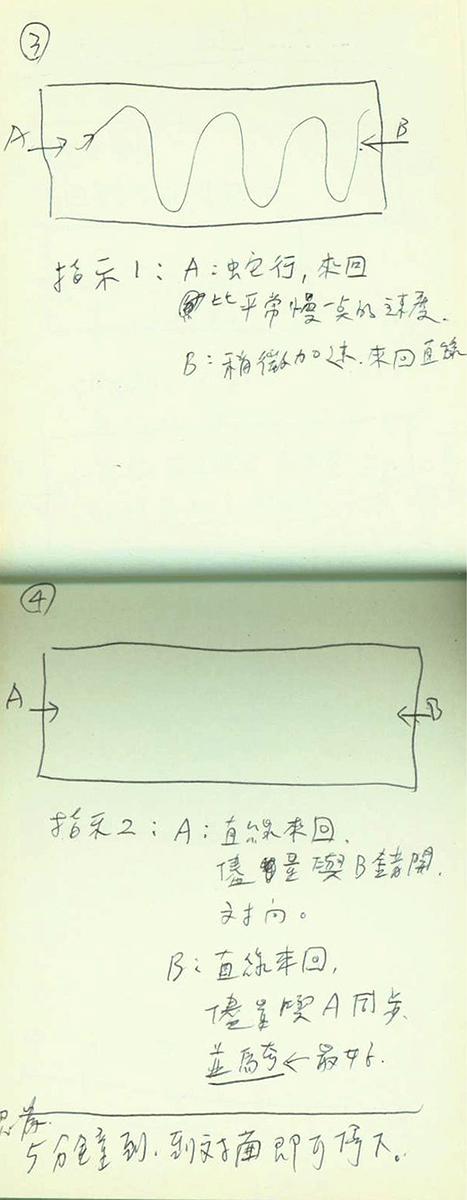 ③
A
B
指示1：A：蛇行，來回
比平常慢一點的速度．
B：稍微加速．來回直線
④
A
B
指示2：A：直線來回．
儘量與B錯開．
方向。
B：直線來回，
儘量與A同步．
並肩 ← 最好．
5分鐘到．到對面即可停下。